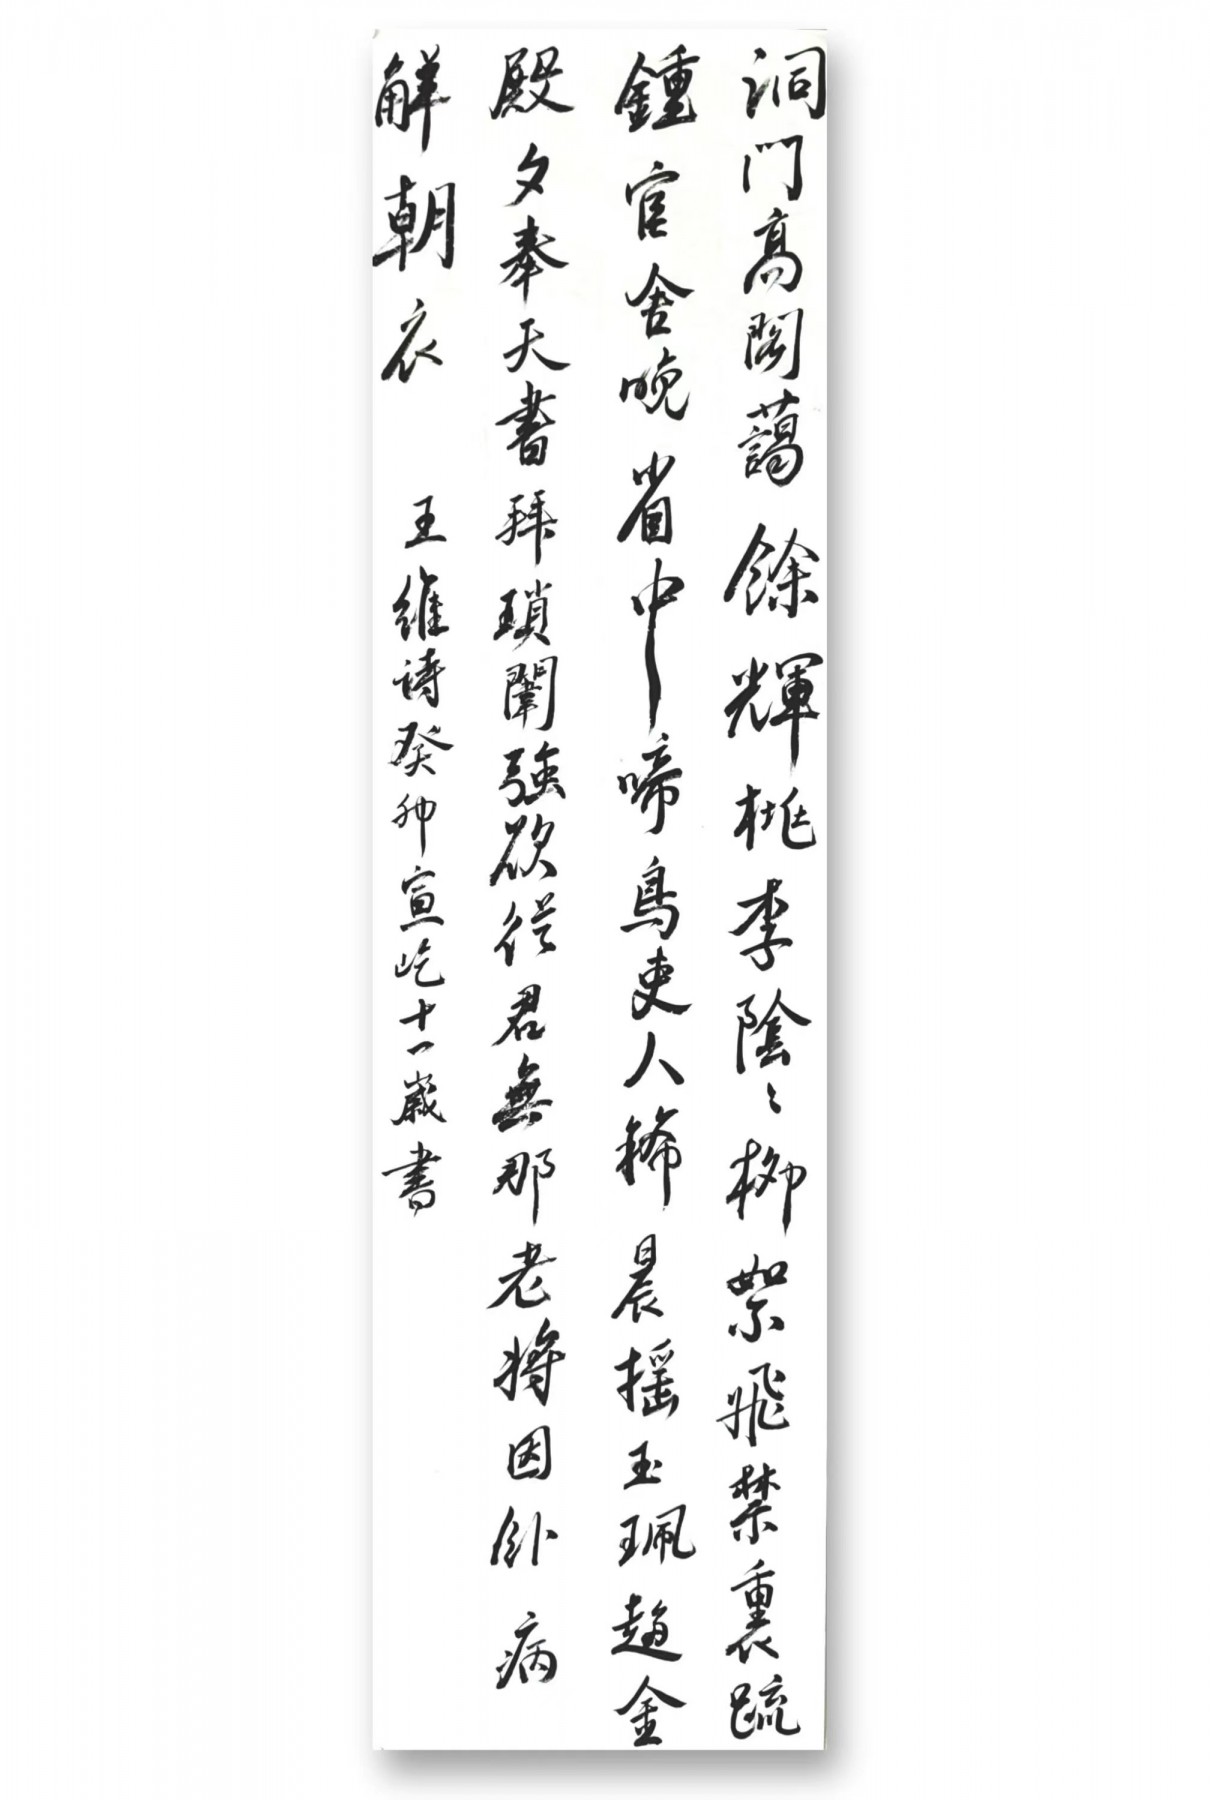 洞門高閣藹餘輝桃李陰々柳絮飛禁裏疏
鍾官舍晚省中啼鳥吏人稀晨搖玉珮趨金
殿夕奉天書拜瑣闈強欲從君無那老將因臥病
解朝衣 王維詩癸卯宣屹十一歲書